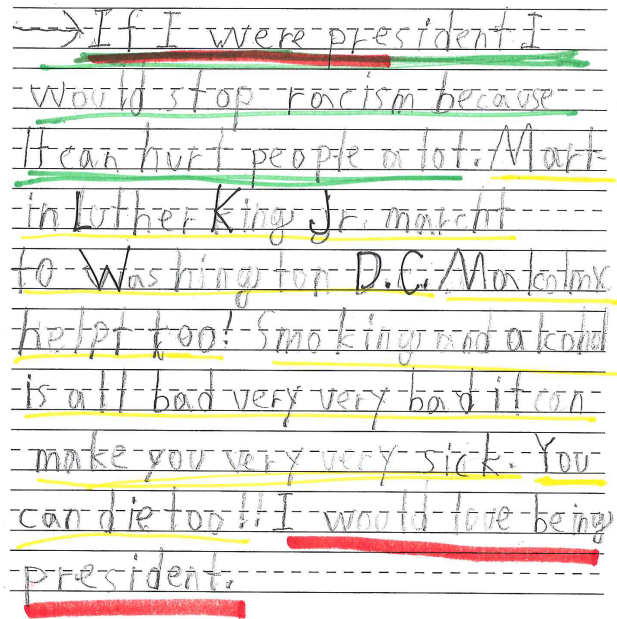 If I were president I
would stop racism because
It can hurt people a lot. Mart
in Luther King Jr. marcht
to Washington D.C. Malcolmx
helpt too! Smoking and alcohol
is all bad very very bad it can
make you very very sick. You
can die too!! I would love being
president.